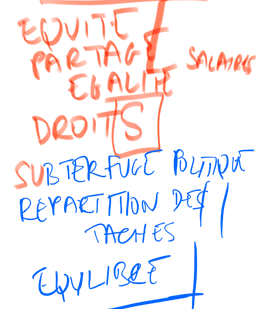 EQUITÉ
PARTAGE SALAIRES
EGALITÉ
DROITS
SUBTERFUGE POLITIQUE
REPARTITION DES
TACHES
EQUILIBRE